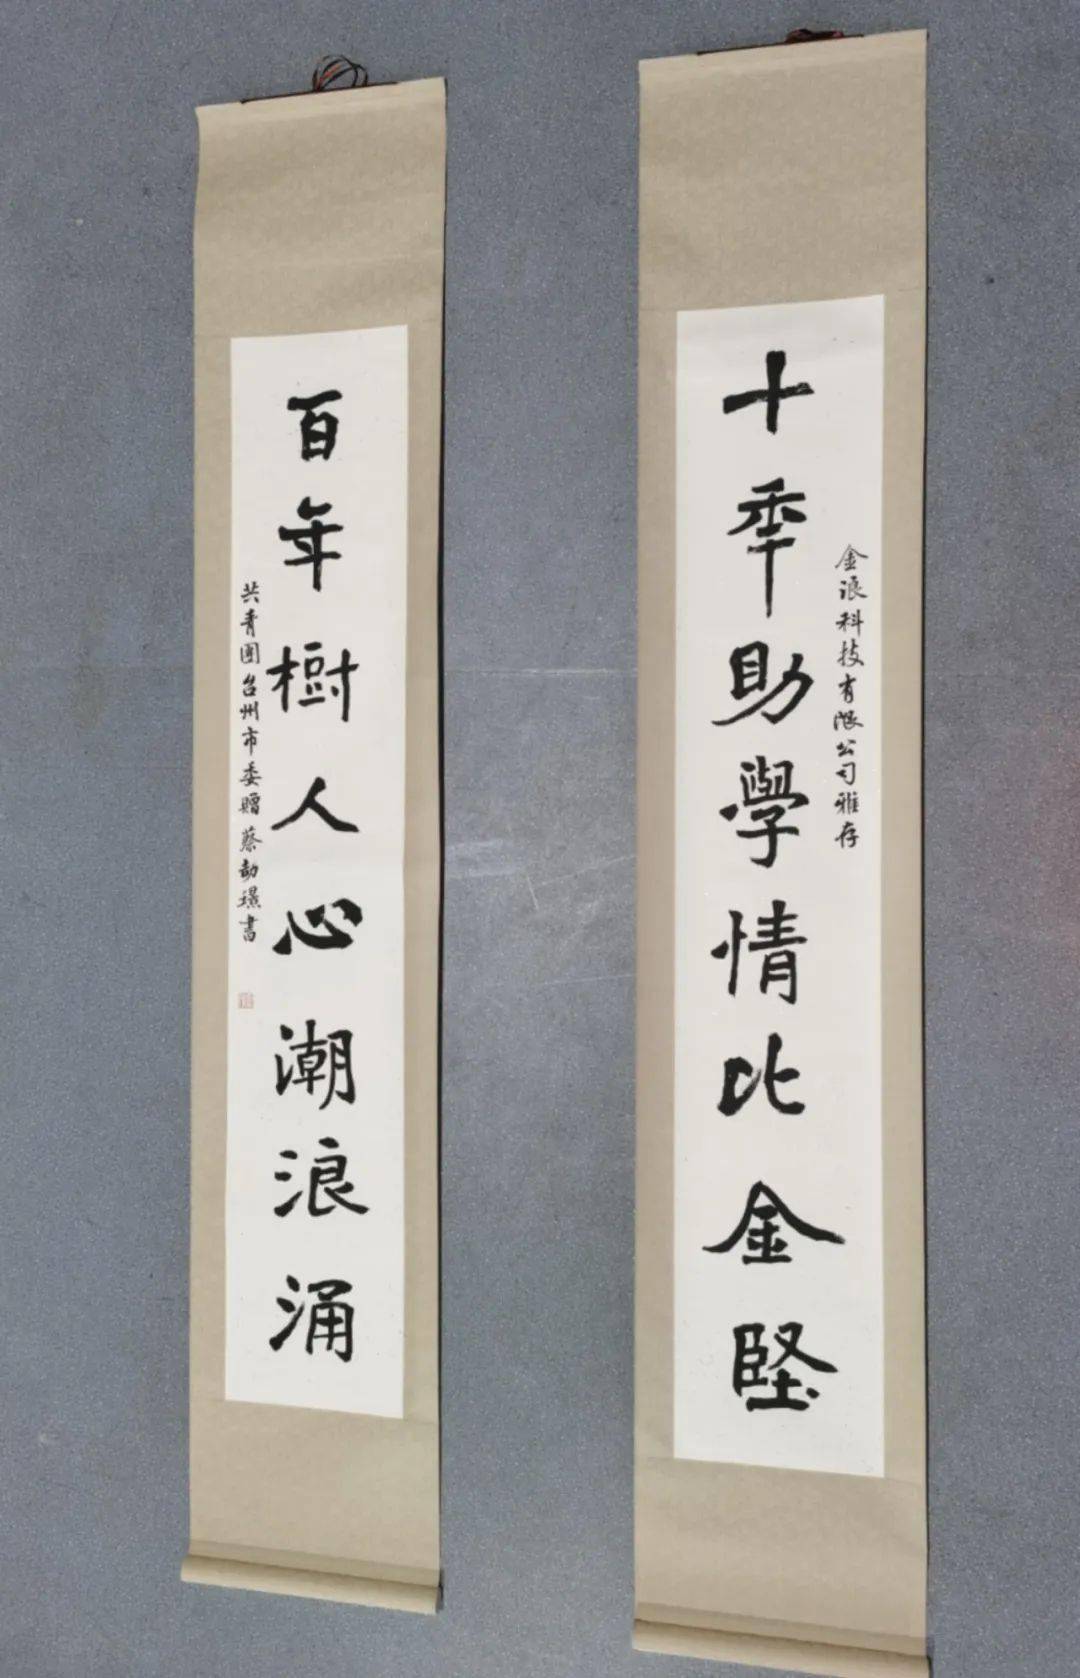 金浪科技有限公司雅存
十年助學情比金堅
百年樹人心潮浪涌
共青團台州市委贈 蔡劼璟書